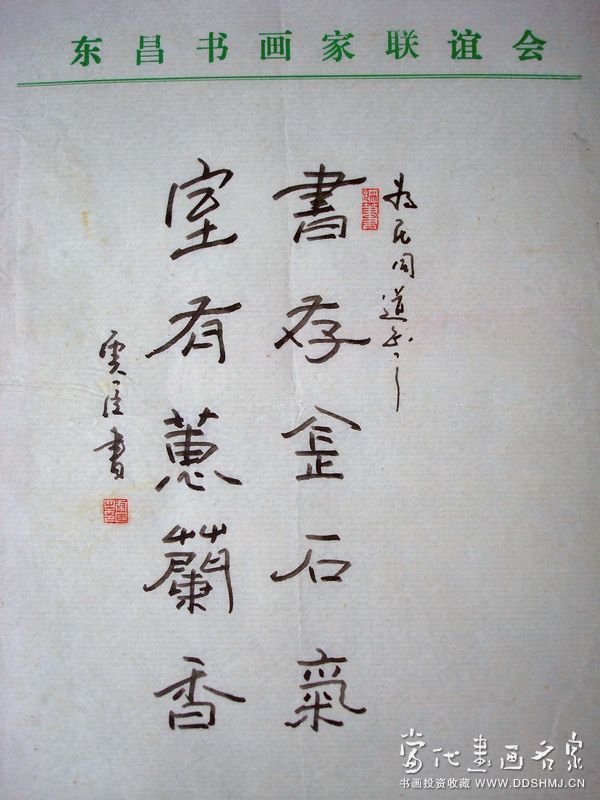 东昌书画家联谊会
書存金石氣
室有蕙蘭香
书
当代书画名家
书画投资收藏 WWW.DDSHMJ.CN